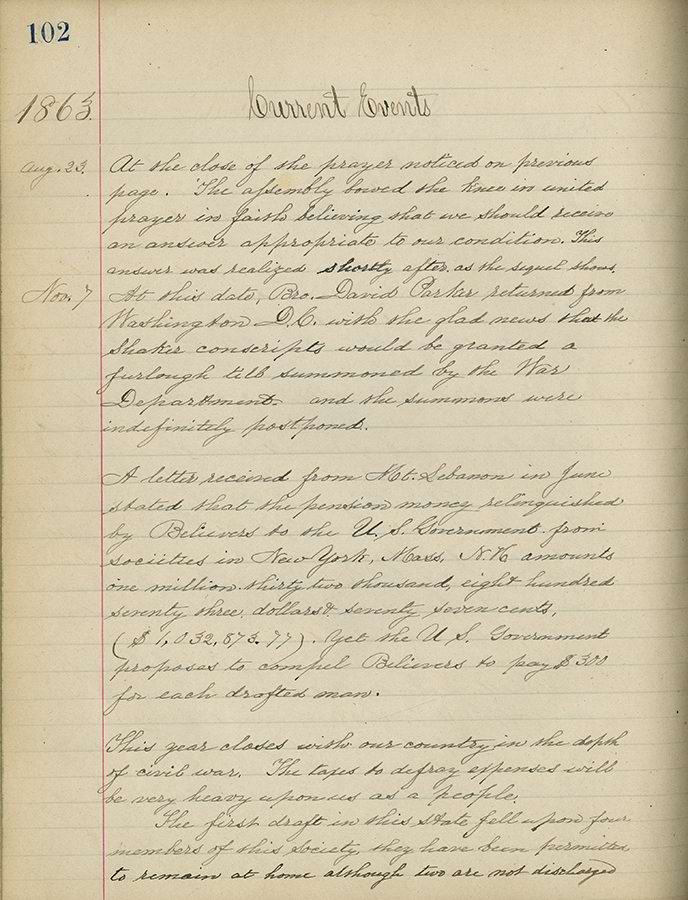 102
1863. Current Events
Aug. 23. At the close of the prayer noticed on previous
page. The assembly bowed the knee in united
prayer in faith believing that we should receive
an answer appropriate to our condition. This
answer was realized shortly after as the sequel shows.
Nov. 7 At this date, Bro. David Parker returned from
Washington D.C. with the glad news that the
Shaker conscripts would be granted a
furlough till summoned by the War
Department and the summons were
indefinitely postponed.
A letter received from Mt. Lebanon in June
stated that the pension money relinquished
by Believers to the U. S. Government from
societies in New York, Mass, N.H. amounts
one million thirty two thousand, eight hundred
seventy three, dollars & seventy seven cents,
($1,032,873.77). Yet the U S. Government
proposes to compel Believers to pay $300
for each drafted man.
This year closes with our country in the depth
of civil war. The taxes to defray expenses will
be very heavy upon us as a people.
The first draft in this State fell upon four
members of this society, they have been permitted
to remain at home although two are not discharged